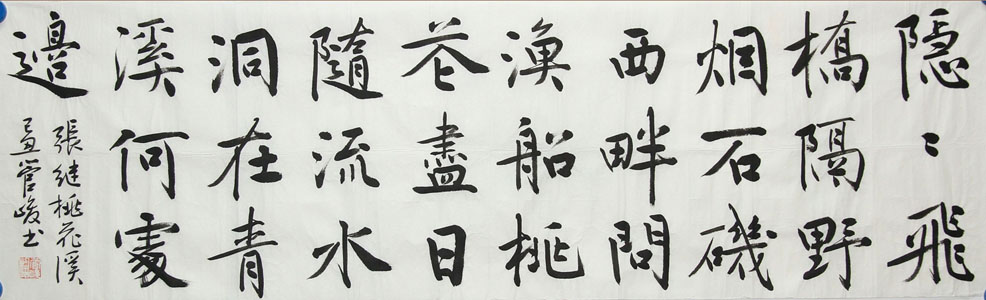 隐〻飛
橋隔野
烟石磯
西畔問
漁船桃
花盡日
隨流水
洞在青
溪何處
邊
張继桃花溪
管峻书